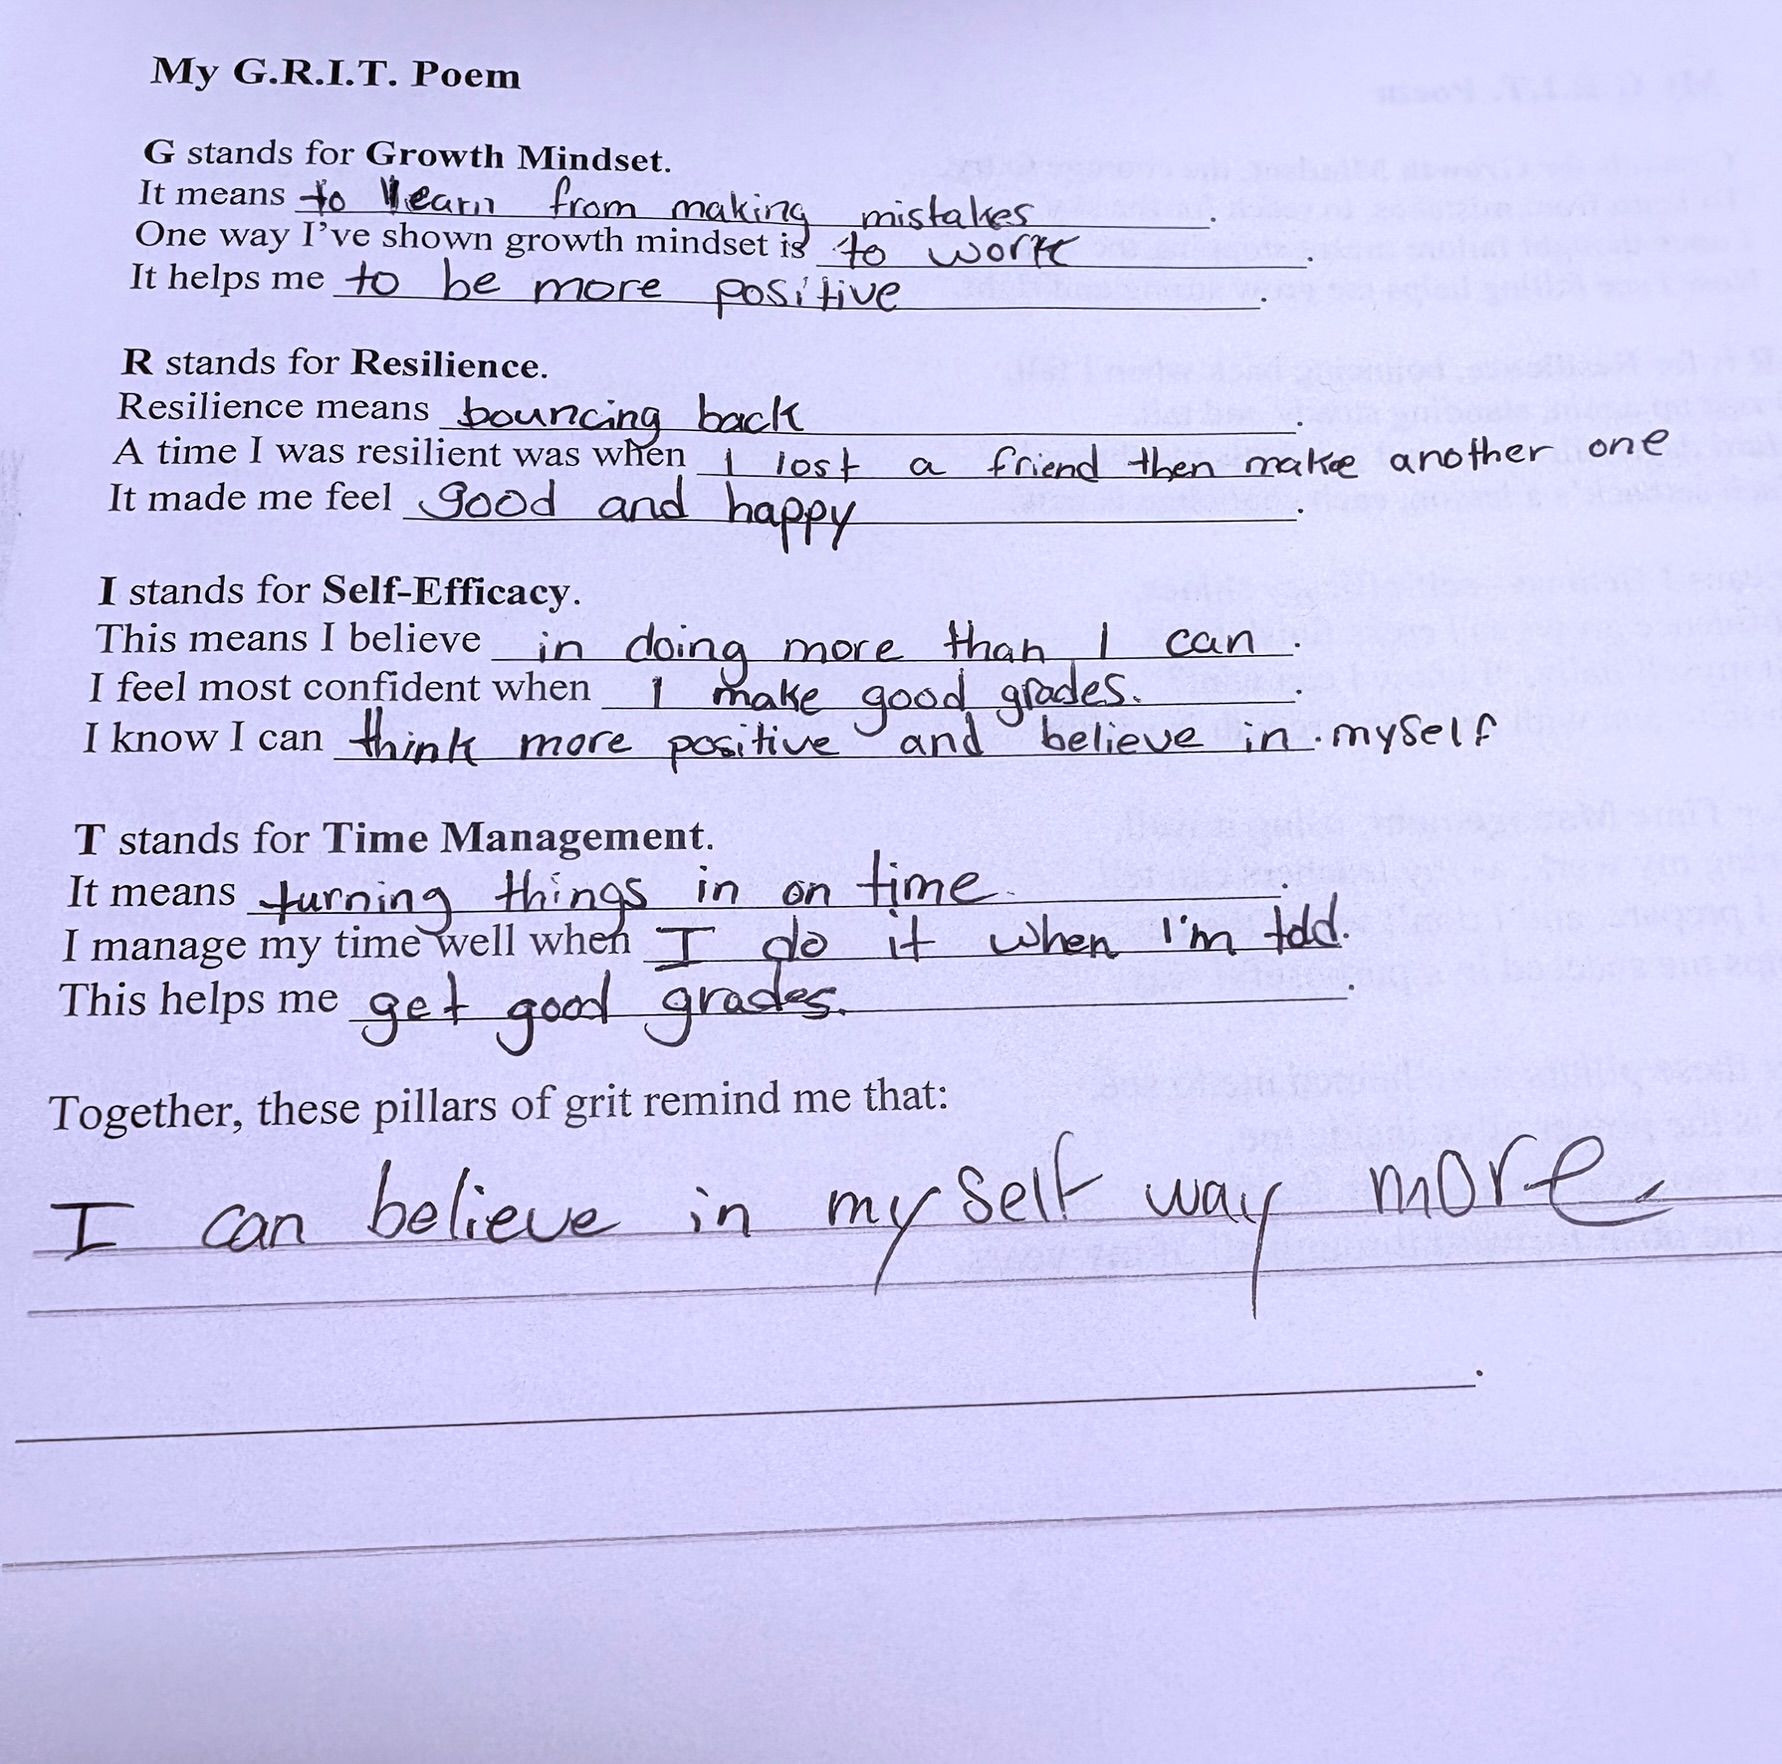 My G.R.I.T. Poem
G stands for Growth Mindset.
It means to learn from making mistakes.
One way I've shown growth mindset is to work.
It helps me to be more positive.
R stands for Resilience.
Resilience means bouncing back.
A time I was resilient was when I lost a friend then make another one
It made me feel good and happy.
I stands for Self-Efficacy.
This means I believe in doing more than I can.
I feel most confident when I make good grades..
I know I can think more positive and believe in. myself
T stands for Time Management.
It means turning things in on time..
I manage my time well when I do it when I'm told.
This helps me get good grades..
Together, these pillars of grit remind me that:
I can believe in my self way more.
.